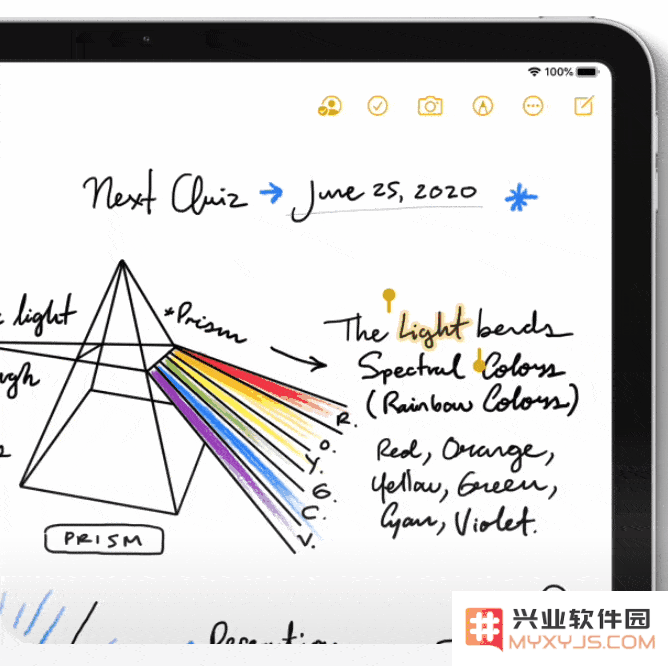 100%
Next Quiz → June 25, 2020 *
light
*Prism
The Light bends
Spectral Colors
(Rainbow Colors)
R.
O.
Y.
G.
C.
V.
Red, Orange,
Yellow, Green,
Cyan, Violet.
PRISM
兴业软件园
MYXYJS.COM